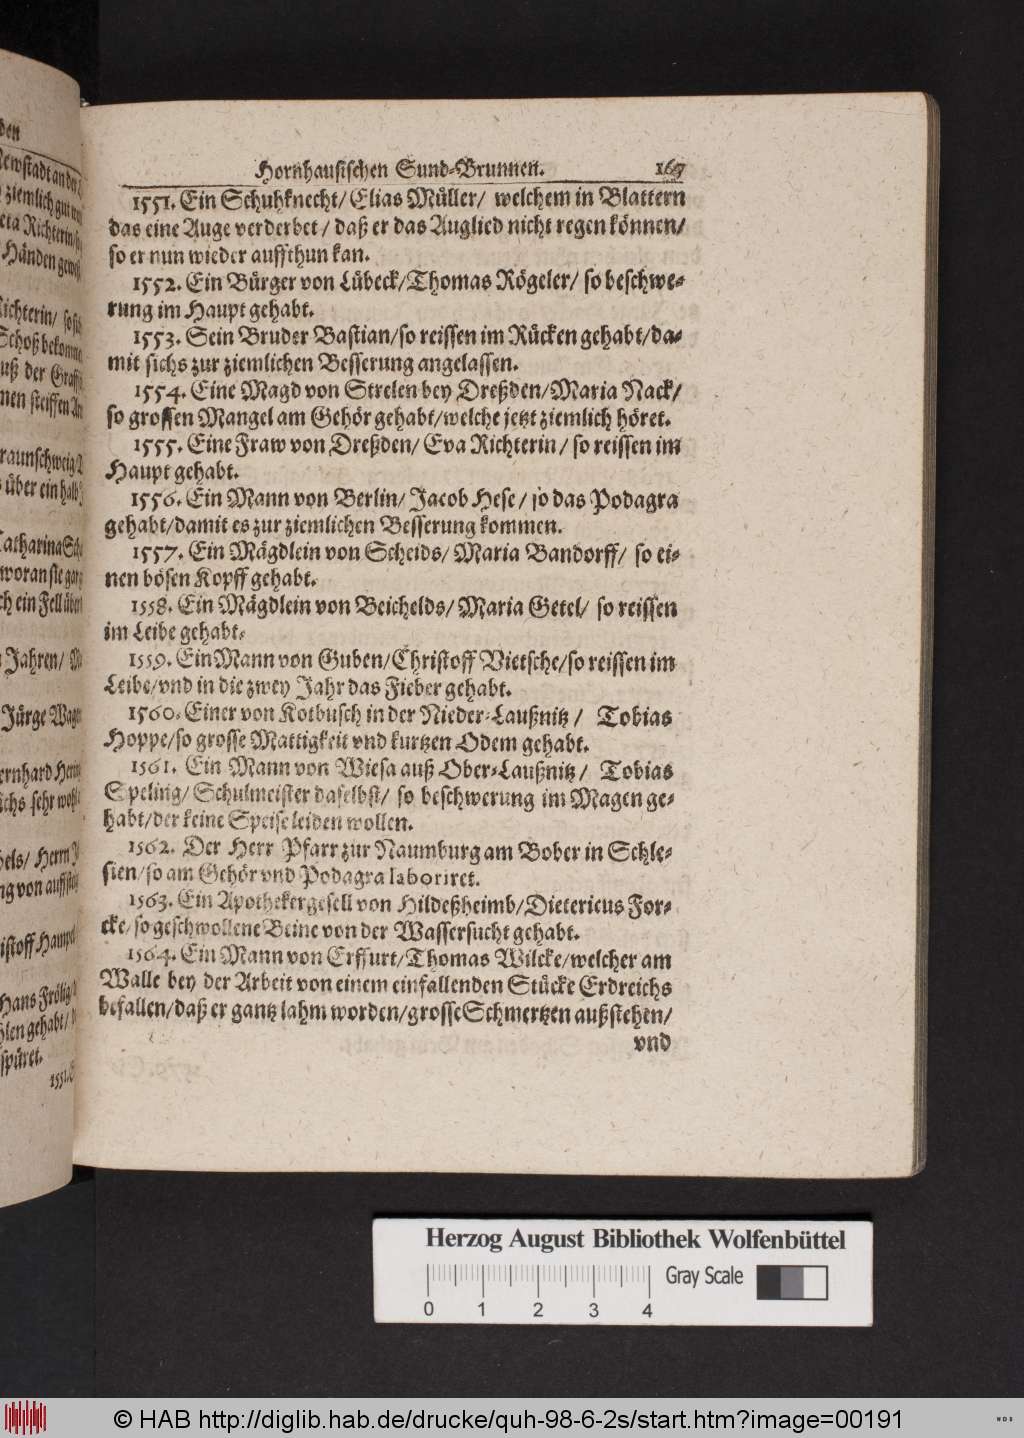 Hornhausischen Sund-Brunnen. 167
1551. Ein Schuhknecht/ Elias Müller/ welchem in Blattern
das eine Auge verderbet/ daß er das Auglied nicht regen können/
so er nun wieder auffthun kan.
1552. Ein Bürger von Lübeck/ Thomas Rögeler/ so beschwe-
rung im Haupt gehabt.
1553. Sein Bruder Bastian/ so reissen im Rücken gehabt/ da-
mit sichs zur ziemlichen Besserung angelassen.
1554. Eine Magd von Strelen bey Dreßden/ Maria Nack/
so grossen Mangel am Gehör gehabt/ welche jetzt ziemlich höret.
1555. Eine Fraw von Dreßden/ Eva Richterin/ so reissen im
Haupt gehabt.
1556. Ein Mann von Berlin/ Jacob Hese/ so das Podagra
gehabt/ damit es zur ziemlichen Besserung kommen.
1557. Ein Mägdlein von Scheids/ Maria Bandorff/ so ei-
nen bösen Kopff gehabt.
1558. Ein Mägdlein von Beichelds/ Maria Getel/ so reissen
im Leibe gehabt.
1559. Ein Mann von Guben/ Christoff Vietsche/ so reissen im
Leibe/ vnd in die zwey Jahr das Fieber gehabt.
1560. Einer von Kotbusch in der Nieder-Laußnitz/ Tobias
Hoppe/ so grosse Mattigkeit vnd kurtzen Odem gehabt.
1561. Ein Mann von Wiesa auß Ober-Laußnitz/ Tobias
Speling/ Schulmeister daselbst/ so beschwerung im Magen ge-
habt/ der keine Speise leiden wollen.
1562. Der Herr Pfarr zur Naumburg am Bober in Schle-
sien/ so am Gehör vnd Podagra laboriret.
1563. Ein Apothekergesell von Hildeßheimb/ Dietericus For-
cke/ so geschwollene Beine von der Wassersucht gehabt.
1564. Ein Mann von Erffurt/ Thomas Wilcke/ welcher am
Walle bey der Arbeit von einem einfallenden Stücke Erdreichs
befallen/ daß er gantz lahm worden/ grosse Schmertzen außstehen/
vnd
Herzog August Bibliothek Wolfenbüttel
0 1 2 3 4
Gray Scale
© HAB http://diglib.hab.de/drucke/quh-98-6-2s/start.htm?image=00191